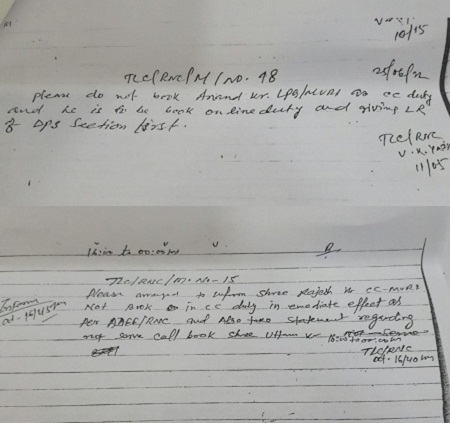 10/15
TLC/RNC/M/NO. 48
25/06/22
please do not book Anand kr. LPG/MURI as cc duty
and he is to be book on line duty and giving LR
of DPS Section first.
TLC/RNC
11/05
16:00 to 00:00
TLC/RNC/M.NO-15
Please arranged to inform Shree Rajesh kr CC-MURI
Inform
at-16/45
Not Book in cc duty in emediate effect as
Per ADEE/RNC and Also take statement regarding
not serve call book shree Uttam kr
16:00 to 00:00
TLC/RNC
at-16/40